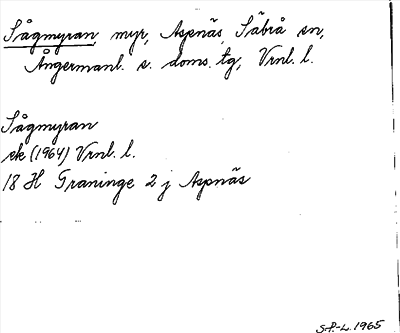 Sågmyran, myr, Aspnäs, Säbrå sn,
Ångermanl. s. doms. tg, Vrnl. l.
Sågmyran
ek (1964) Vrnl. l.
18 H Graninge 2 j Aspnäs
S.P.-L. 1965